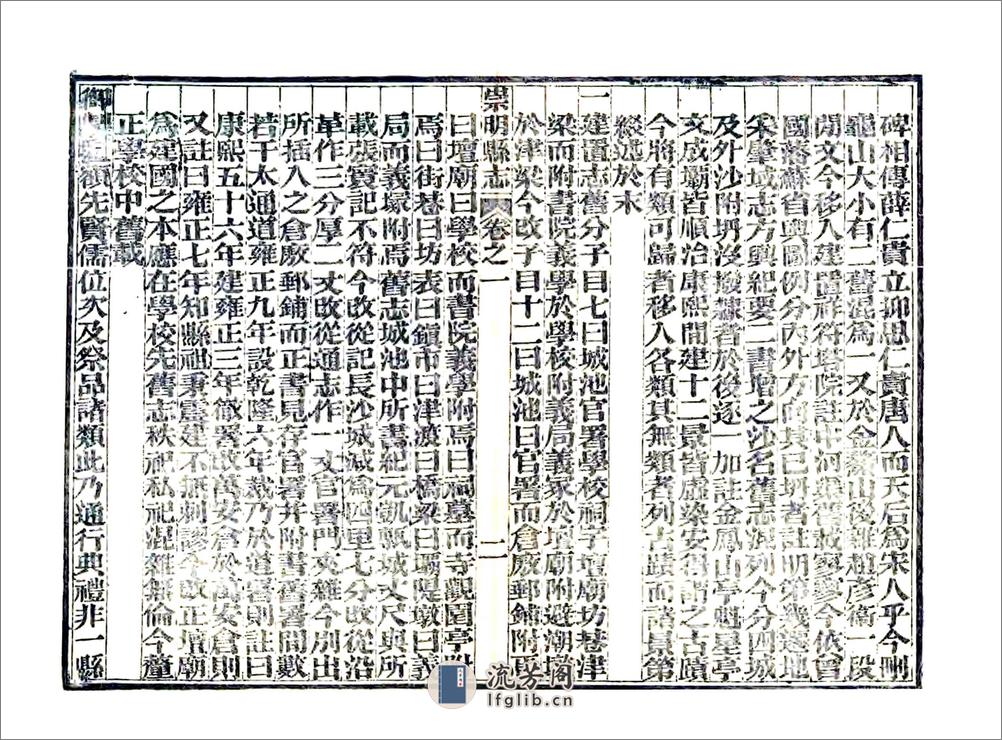 碑相傳薛仁貴立抑思仁貴唐人而天后為宋人乎今刪
龜山大小有二舊混為一又於金鰲山後雜趙彥衛一段
閒文今移入建置祥符塔院註中河渠舊載寥寥今依曾
國藩蘇省輿圖例分內外方向其已坍者註明第幾遞地
朱肇域志方輿紀要二書增之沙名舊志混列今分四城
及外沙附坍沒撥隸者於後逐一加註金鳳山亭魁星亭
文成壩皆順治康熙間建十二景皆虛染安得謂之古蹟
今將有類可歸者移入各類其無類者列古蹟而諸景第
綴述於末
一建置志舊分子目七曰城池官署學校祠子壇廟坊巷津
梁而附書院義學於學校附義局義冢於壇廟附避潮墩
於津梁今改子目十二曰城池曰官署而倉廒郵鋪附焉
崇明縣志 卷之一 二
曰壇廟曰學校而書院義學附焉曰祠墓而寺觀園亭附
焉曰街巷曰坊表曰鎮市曰津渡曰橋梁曰壩隄墩曰義
局而義塚附焉舊志城池中所書紀元訛甄城丈尺與所
載張寰記不符今改從記長沙城減為四里七分改從沿
革作三分厚二丈改從通志作一丈官署門夾雜今別出
所插入之倉廒郵鋪而正書見存官署并附書舊署間數
若干太通道雍正九年設乾隆六年裁乃於道署則註曰
康熙五十六年建雍正三年徹署改萬安倉於萬安倉則
又註曰雍正七年知縣祖秉震建不無刺謬今改正壇廟
為建國之本應在學校先舊志秩祀私祀混雜無倫今釐
正學校中舊載
御製至聖先賢儒位次及祭品諸類此乃通行典禮非一縣
流芳閣
lfglib.cn